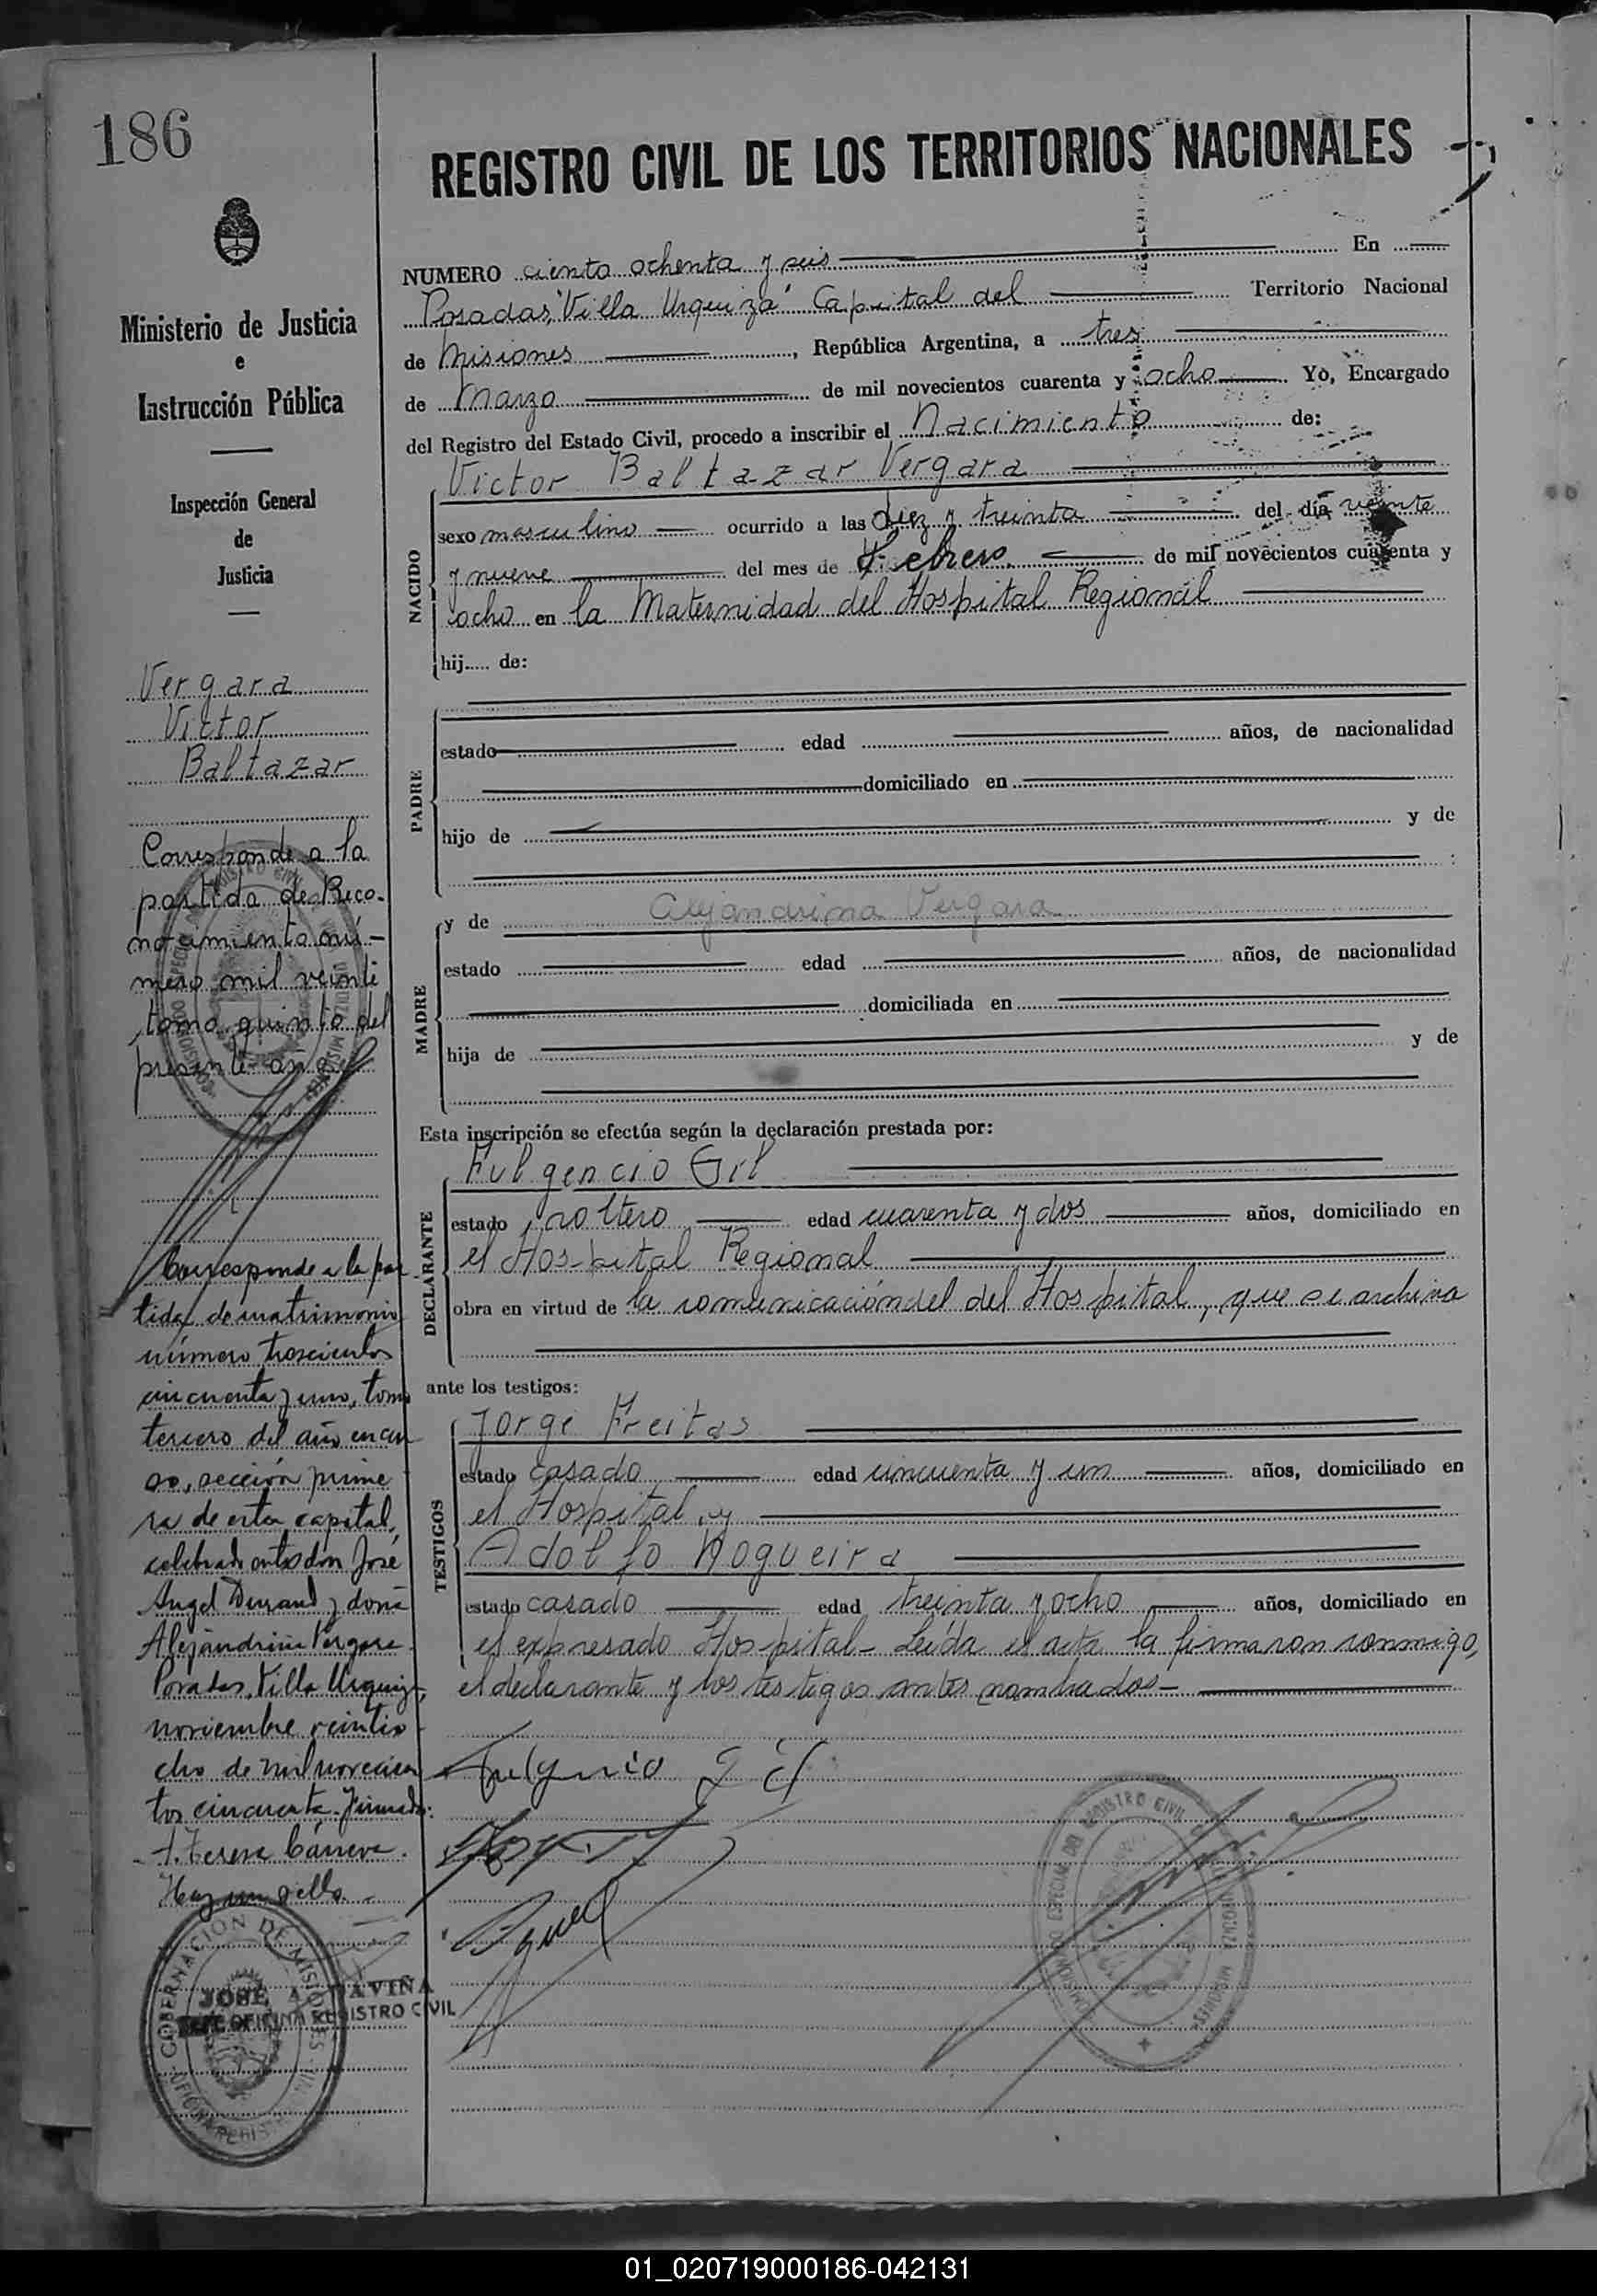 186
REGISTRO CIVIL DE LOS TERRITORIOS NACIONALES
Ministerio de Justicia
e
Instrucción Pública
Inspección General
de
Justicia
Vergara
Victor
Baltazar
Corresponde a la
partida de Reco-
nocimiento nú-
mero mil veinte
tomo quinto del
presente año
Corresponde a la par
tida de matrimonio
número trescientos
cincuenta y uno, tomo
tercero del año en cur
so, sección prime
ra de esta capital,
celebrado entre don José
Angel Durand y doña
Alejandrina Vergara
Posadas, Villa Urquiza,
noviembre veintio
cho de mil novecien
tos cincuenta. Firmado:
Hay un sello
GOBERNACION DE MISIONES
JOSE A. DAVIÑA
JEFE OFICINA REGISTRO CIVIL
NUMERO ciento ochenta y seis En
Posadas, "Villa Urquiza" Capital del Territorio Nacional
de Misiones, República Argentina, a tres
de Marzo de mil novecientos cuarenta y ocho. Yo, Encargado
del Registro del Estado Civil, procedo a inscribir el Nacimiento de:
NACIDO
Victor Baltazar Vergara
sexo masculino ocurrido a las diez y treinta del día veinte
y nueve del mes de Febrero. de mil novecientos cuarenta y
ocho en la Maternidad del Hospital Regional
hij..... de:
PADRE
estado edad años, de nacionalidad
domiciliado en
hijo de y de
:
MADRE
y de Alejandrina Vergara
estado edad años, de nacionalidad
domiciliada en
hija de y de
Esta inscripción se efectúa según la declaración prestada por:
DECLARANTE
Fulgencio Gil
estado soltero edad cuarenta y dos años, domiciliado en
el Hospital Regional
obra en virtud de la comunicación del del Hospital, que se archiva
ante los testigos:
TESTIGOS
Jorge Freitas
estado casado edad cincuenta y un años, domiciliado en
el Hospital y
Adolfo Nogueira
estado casado edad treinta y ocho años, domiciliado en
el expresado Hospital - Leída el acta la firmaron conmigo,
el declarante y los testigos antes nombrados -
Fulgencio Gil
REGISTRO CIVIL
01_020719000186-042131